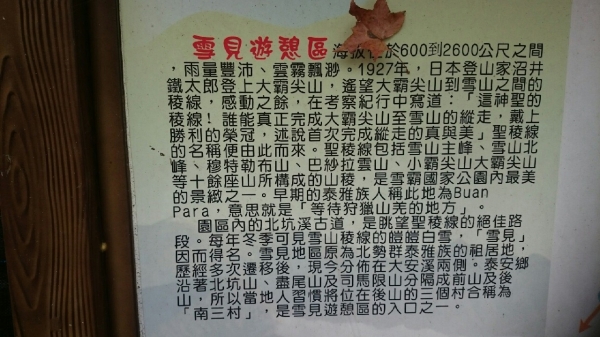 雪見遊憩區海拔於600到2600公尺之間
，雨量豐沛、雲霧飄渺。1927年，日本登山家沼井
鐵太郎登上大霸尖山，遙望大霸尖山到雪山之間的
稜線，感動之餘，在考察紀行中寫道：「這神聖的
稜線！誰能真正完成大霸尖山至雪山的縱走，戴上
勝利的榮冠，述說首次完成縱走的真與美」聖稜線
的名稱便由此而來。聖稜線包括雪山主峰、雪山北
峰、穆特勒布山、巴紗拉雲山、小霸尖山大霸尖山
等十餘座山所構成的山稜，是雪霸國家公園內最美
的景緻之一。早期的泰雅族人稱此地為Buan
Para，意思就是「等待狩獵山羌的地方」。
園區內的北坑溪古道，是眺望聖稜線的絕佳路
段。每年冬季可見雪山稜線的皚皚白雪，「雪見」
因而得名。雪見地區原為北勢群泰雅族的祖居地，
歷經多次遷移後，現今分佈在大安溪兩側。泰安鄉
沿著北坑、盡尾山及司馬限山分隔成前山及後
山，所以當地人習慣將位在後山的三個村合稱為
「南三村」，是雪見遊憩區的入口之一。